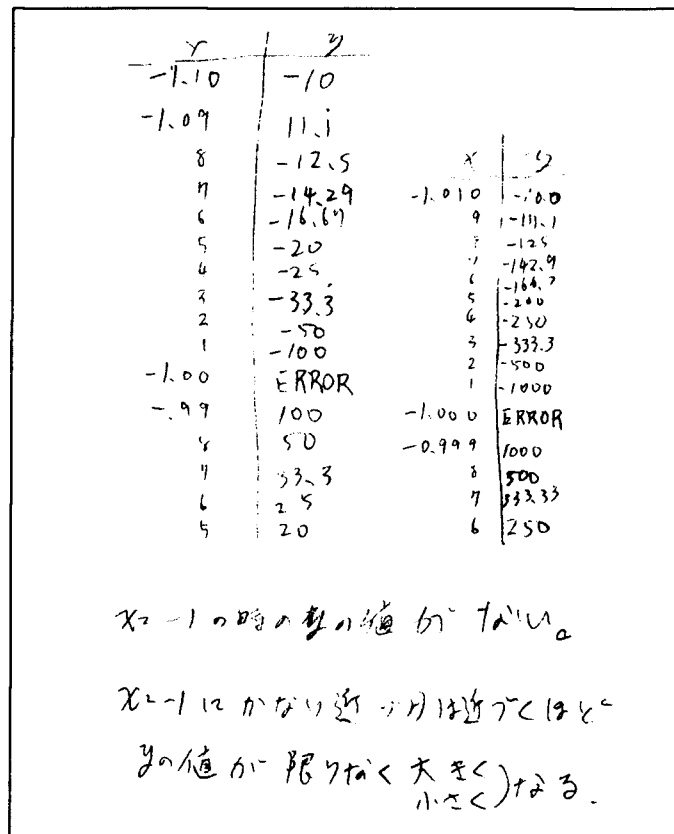 x y
-1.10 -10
-1.09 11.1
8 -12.5
7 -14.29
6 -16.67
5 -20
4 -25
3 -33.3
2 -50
1 -100
-1.00 ERROR
-.99 100
8 50
7 33.3
6 25
5 20
x y
-1.010 -100
9 -111.1
8 -125
7 -142.9
6 -166.7
5 -200
4 -250
3 -333.3
2 -500
1 -1000
-1.000 ERROR
-0.999 1000
8 500
7 333.33
6 250
x=-1の時のyの値がない。
x=-1にかなり近 は近づくほど
yの値が限りなく大きく
小さく)なる.